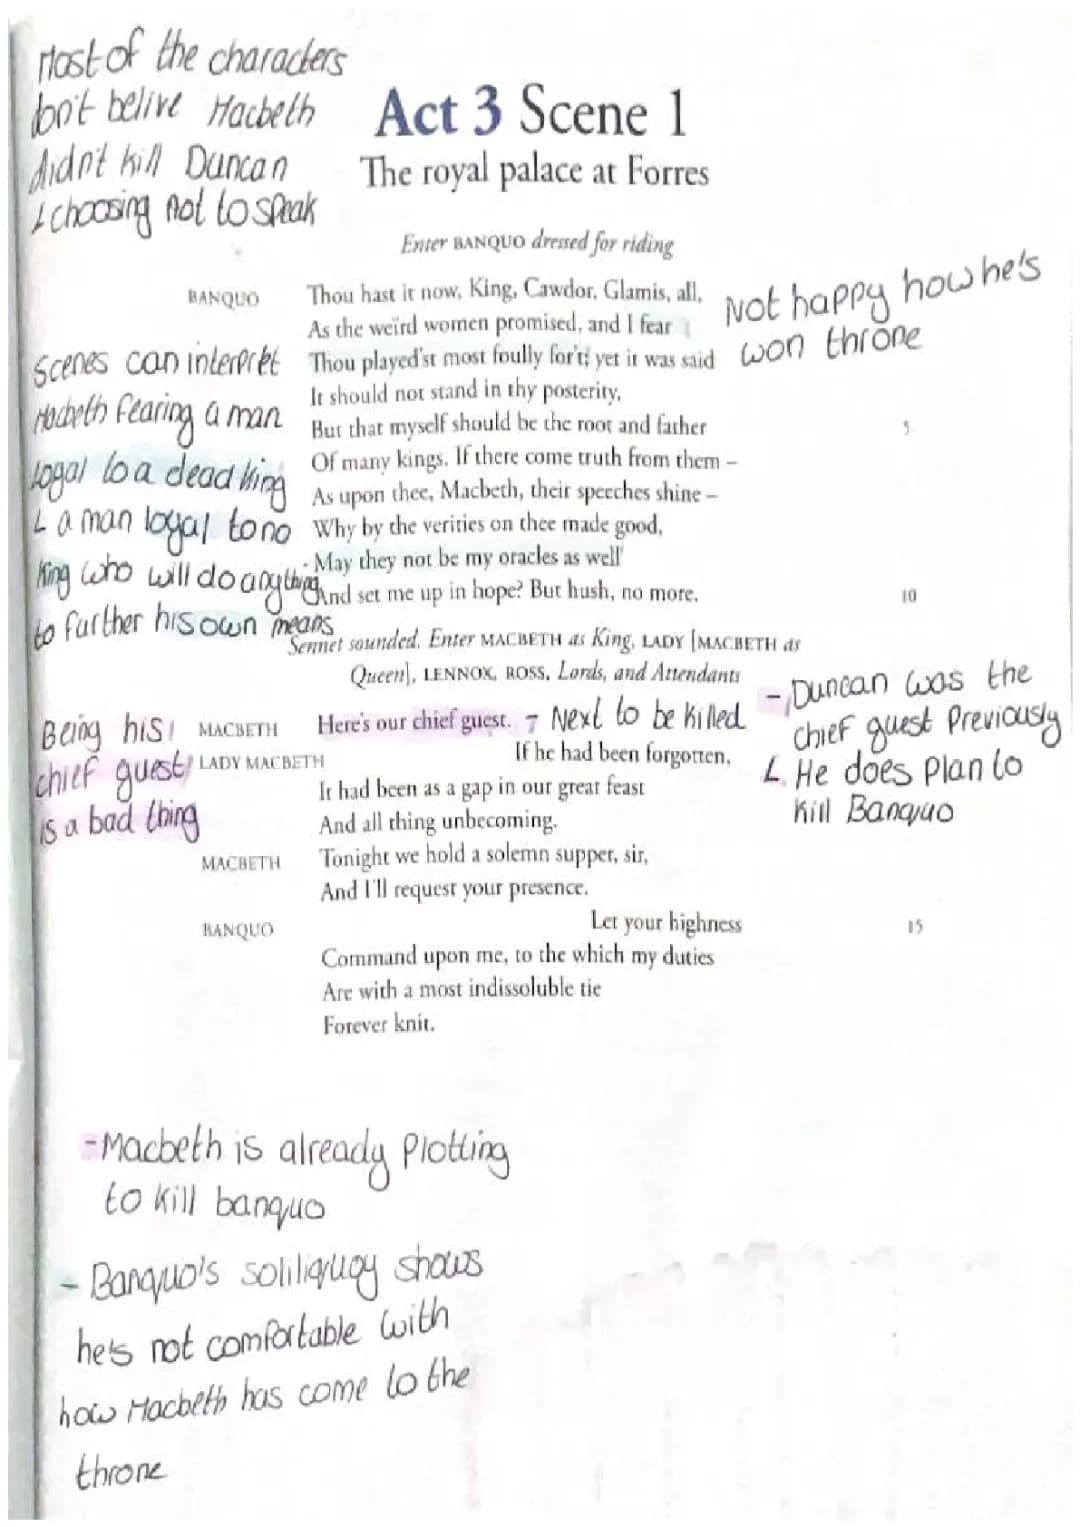 Most of the characters
don't belive Macbeth
didn't kill Duncan
L choosing not to speak
Act 3 Scene 1
The royal palace at Forres
Enter BANQUO dressed for riding
BANQUO Thou hast it now, King, Cawdor, Glamis, all,
As the weïrd women promised, and I fear
Thou played'st most foully for't; yet it was said
It should not stand in thy posterity,
But that myself should be the root and father 5
Of many kings. If there come truth from them –
As upon thee, Macbeth, their speeches shine –
Why by the verities on thee made good,
May they not be my oracles as well
And set me up in hope? But hush, no more. 10
Not happy how he's
won throne
Scenes can interpret
Macbeth fearing a man
loyal to a dead king
L a man loyal to no
king who will do anything
to further his own means
Sennet sounded. Enter MACBETH as King, LADY [MACBETH as
Queen], LENNOX, ROSS, Lords, and Attendants
MACBETH Here's our chief guest. Next to be killed
LADY MACBETH If he had been forgotten,
It had been as a gap in our great feast
And all thing unbecoming.
MACBETH Tonight we hold a solemn supper, sir,
And I'll request your presence.
BANQUO Let your highness 15
Command upon me, to the which my duties
Are with a most indissoluble tie
Forever knit.
Being his
chief guest
is a bad thing
- Duncan was the
chief guest Previously
L He does plan to
kill Banquo
- Macbeth is already Plotting
to kill banquo
- Banquo's soliliquoy shows
he's not comfortable with
how Macbeth has come to the
throne